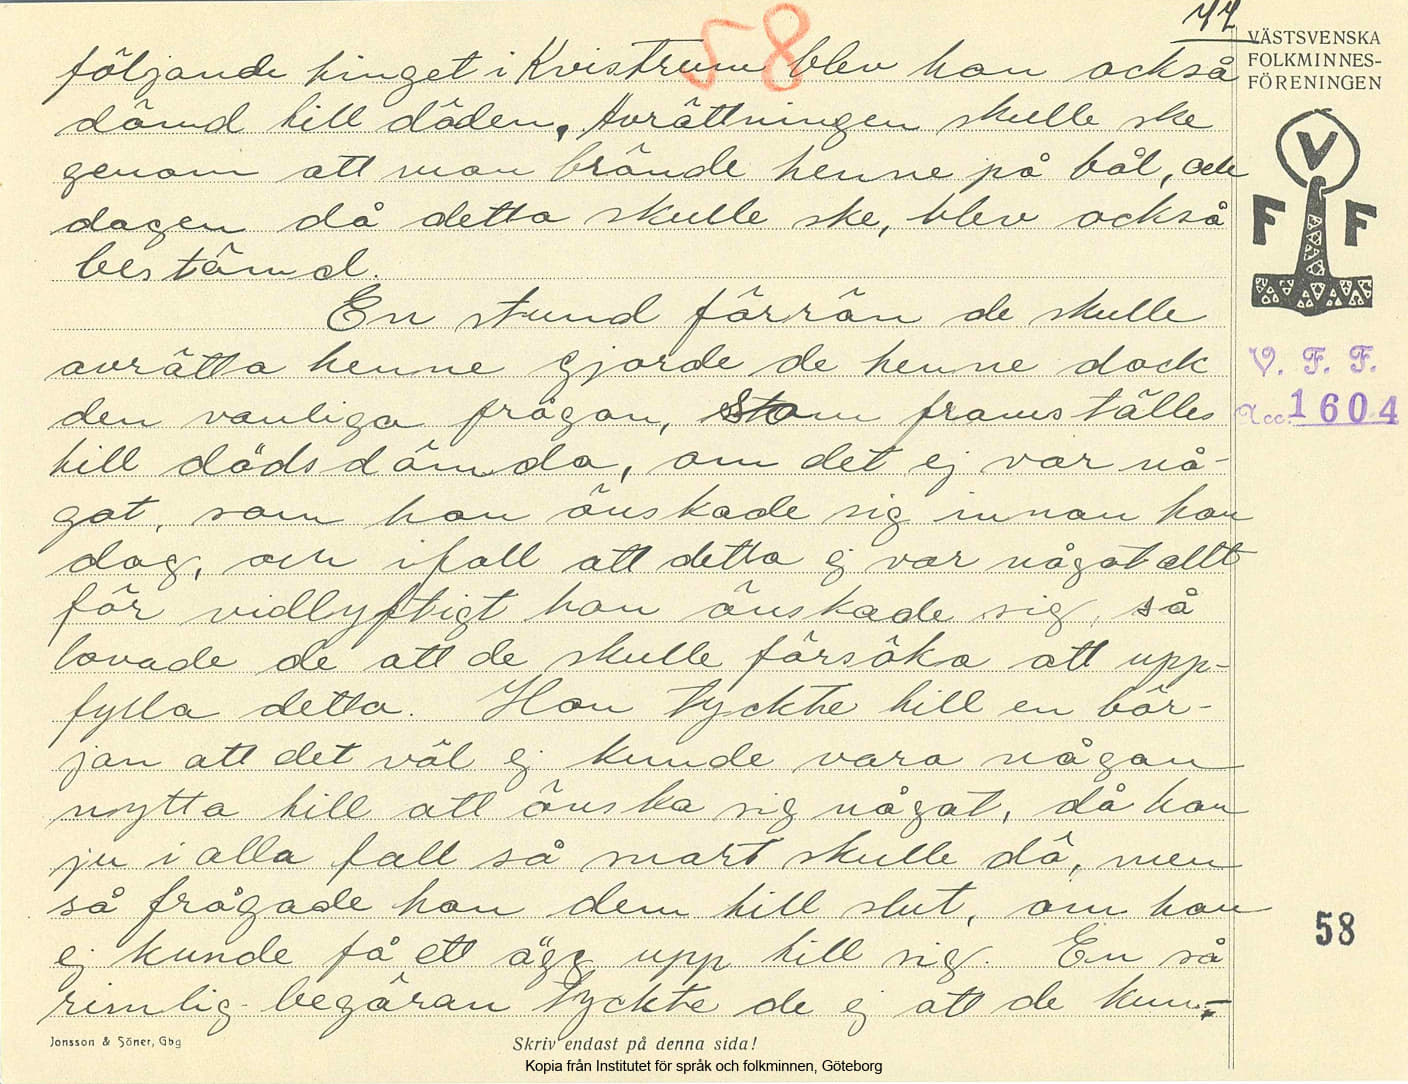 44
58
VÄSTSVENSKA
FOLKMINNES-
FÖRENINGEN
V
F F
V. F. F.
Acc. 1604
58
följande tinget i Kviström blev hon också
dömd till döden. Avrättningen skulle ske
genom att man brände henne på bål, och
dagen då detta skulle ske, blev också
bestämd.
En stund förrän de skulle
avrätta henne gjorde de henne dock
den vanliga frågan, som framställes
till dödsdömda, om det ej var nå-
got, som hon önskade sig innan hon
dog, och ifall att detta ej var något allt
för vidlyftigt hon önskade sig, så
lovade de att de skulle försöka att upp-
fylla detta. Hon tyckte till en bör-
jan att det väl ej kunde vara någon
nytta till att önska sig något, då hon
ju i alla fall så snart skulle dö, men
så frågade hon dem till slut, om hon
ej kunde få ett ägg upp till sig. En så
rimlig begäran tyckte de ej att de kun-
Jonsson & Söner, Gbg
Skriv endast på denna sida!
Kopia från Institutet för språk och folkminnen, Göteborg